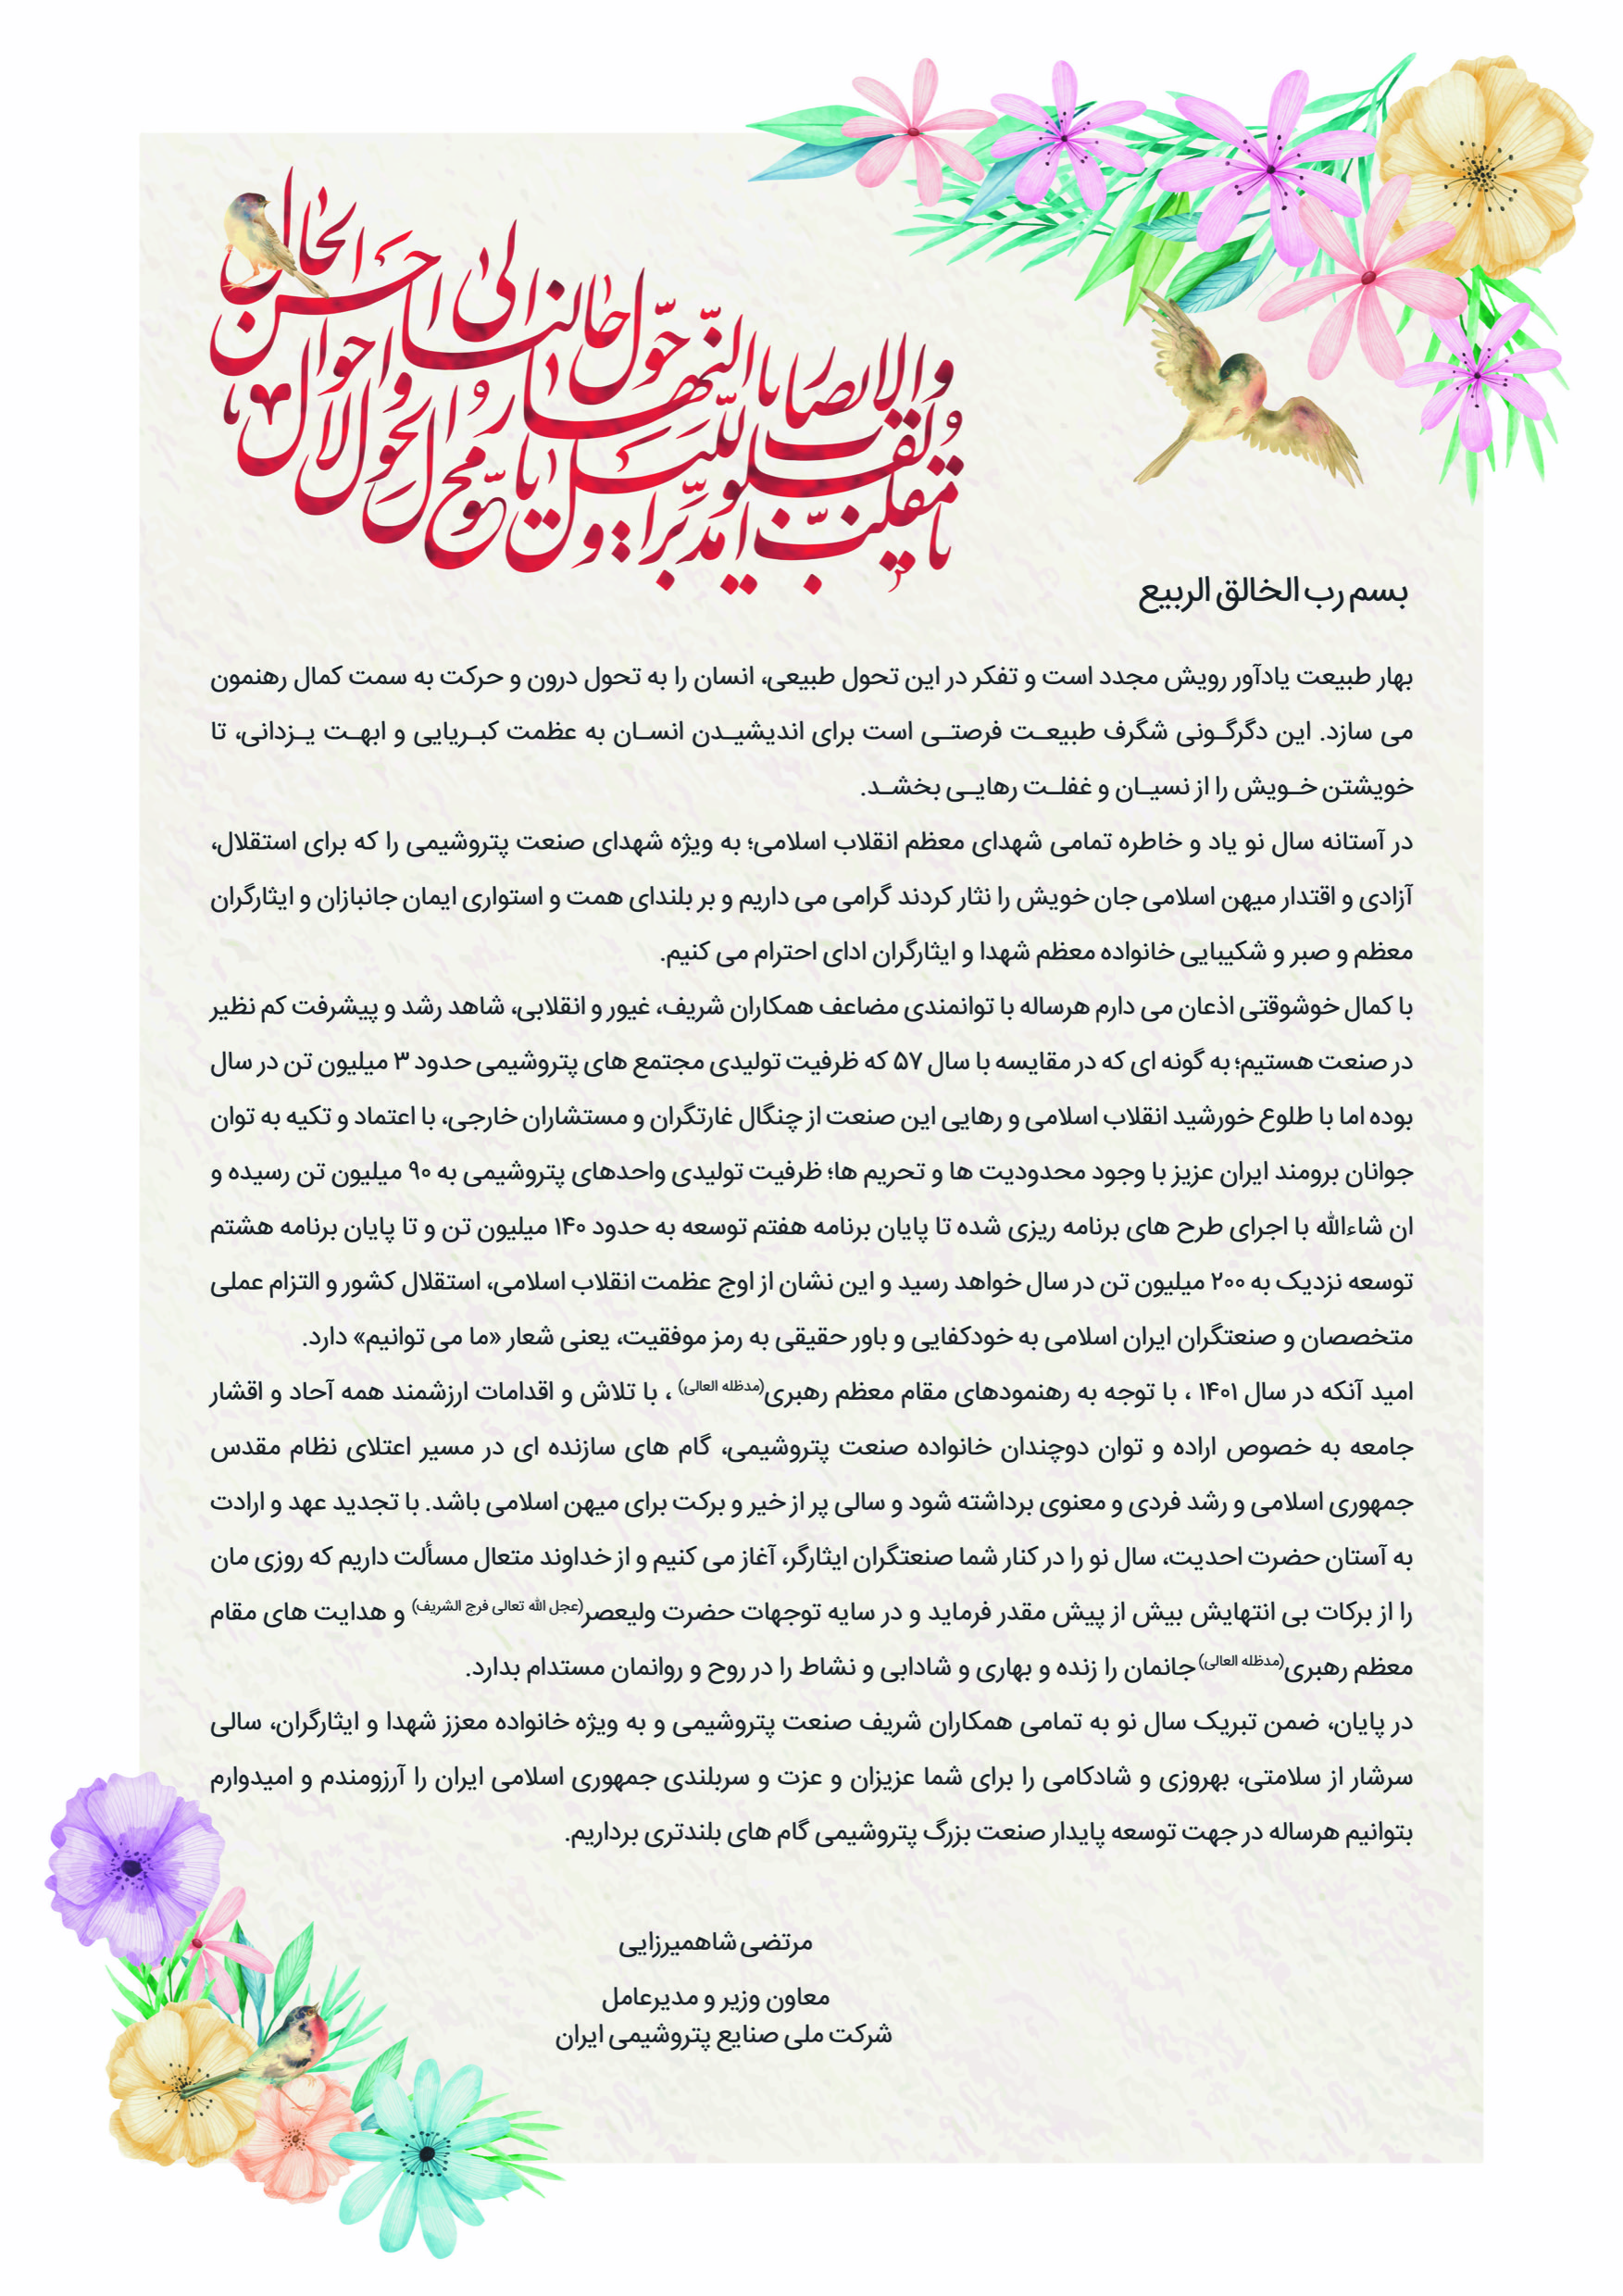 یا مقلب القلوب والابصار
یا مدبر اللیل و النهار
یا محول الحول و الاحوال
حول حالنا الی احسن الحال
بسم رب الخالق الربیع
بهار طبیعت یادآور رویش مجدد است و تفکر در این تحول طبیعی، انسان را به تحول درون و حرکت به سمت کمال رهنمون
می سازد. این دگرگـونی شگرف طبیعـت فرصتـی است برای اندیشیـدن انسـان به عظمت کبـریایی و ابهـت یـزدانی، تا
خویشتن خـویش را از نسیـان و غفلـت رهایـی بخشـد.
در آستانه سال نو یاد و خاطره تمامی شهدای معظم انقلاب اسلامی؛ به ویژه شهدای صنعت پتروشیمی را که برای استقلال،
آزادی و اقتدار میهن اسلامی جان خویش را نثار کردند گرامی می داریم و بر بلندای همت و استواری ایمان جانبازان و ایثارگران
معظم و صبر و شکیبایی خانواده معظم شهدا و ایثارگران ادای احترام می کنیم.
با کمال خوشوقتی اذعان می دارم هرساله با توانمندی مضاعف همکاران شریف، غیور و انقلابی، شاهد رشد و پیشرفت کم نظیر
در صنعت هستیم؛ به گونه ای که در مقایسه با سال ۵۷ که ظرفیت تولیدی مجتمع های پتروشیمی حدود ۳ میلیون تن در سال
بوده اما با طلوع خورشید انقلاب اسلامی و رهایی این صنعت از چنگال غارتگران و مستشاران خارجی، با اعتماد و تکیه به توان
جوانان برومند ایران عزیز با وجود محدودیت ها و تحریم ها؛ ظرفیت تولیدی واحدهای پتروشیمی به ۹۰ میلیون تن رسیده و
ان شاءالله با اجرای طرح های برنامه ریزی شده تا پایان برنامه هفتم توسعه به حدود ۱۴۰ میلیون تن و تا پایان برنامه هشتم
توسعه نزدیک به ۲۰۰ میلیون تن در سال خواهد رسید و این نشان از اوج عظمت انقلاب اسلامی، استقلال کشور و التزام عملی
متخصصان و صنعتگران ایران اسلامی به خودکفایی و باور حقیقی به رمز موفقیت، یعنی شعار «ما می توانیم» دارد.
امید آنکه در سال ۱۴۰۱ ، با توجه به رهنمودهای مقام معظم رهبری(مدظله العالی) ، با تلاش و اقدامات ارزشمند همه آحاد و اقشار
جامعه به خصوص اراده و توان دوچندان خانواده صنعت پتروشیمی، گام های سازنده ای در مسیر اعتلای نظام مقدس
جمهوری اسلامی و رشد فردی و معنوی برداشته شود و سالی پر از خیر و برکت برای میهن اسلامی باشد. با تجدید عهد و ارادت
به آستان حضرت احدیت، سال نو را در کنار شما صنعتگران ایثارگر، آغاز می کنیم و از خداوند متعال مسألت داریم که روزی مان
را از برکات بی انتهایش بیش از پیش مقدر فرماید و در سایه توجهات حضرت ولیعصر(عجل الله تعالی فرج الشریف) و هدایت های مقام
معظم رهبری(مدظله العالی) جانمان را زنده و بهاری و شادابی و نشاط را در روح و روانمان مستدام بدارد.
در پایان، ضمن تبریک سال نو به تمامی همکاران شریف صنعت پتروشیمی و به ویژه خانواده معزز شهدا و ایثارگران، سالی
سرشار از سلامتی، بهروزی و شادکامی را برای شما عزیزان و عزت و سربلندی جمهوری اسلامی ایران را آرزومندم و امیدوارم
بتوانیم هرساله در جهت توسعه پایدار صنعت بزرگ پتروشیمی گام های بلندتری برداریم.
مرتضی شاهمیرزایی
معاون وزیر و مدیرعامل
شرکت ملی صنایع پتروشیمی ایران